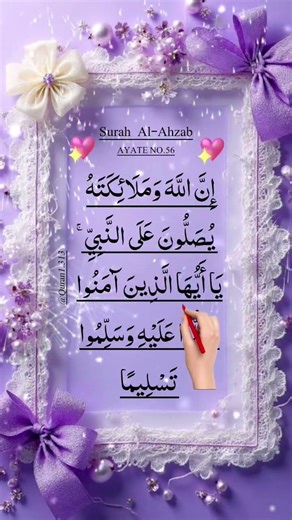 Surah Al-Ahzab
AYATE NO.56
إِنَّ اللَّهَ وَمَلَائِكَتَهُ
يُصَلُّونَ عَلَى النَّبِيِّ ۚ
يَا أَيُّهَا الَّذِينَ آمَنُوا
عَلَيْهِ وَسَلِّمُوا
تَسْلِيمًا
@Quran1_313